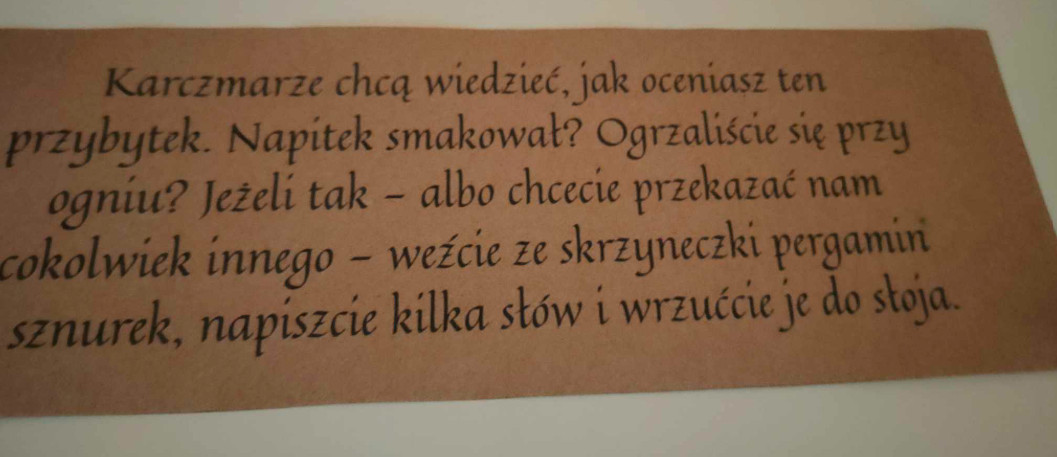 Karczmarze chcą wiedzieć, jak oceniasz ten
przybytek. Napitek smakował? Ogrzaliście się przy
ogniu? Jeżeli tak – albo chcecie przekazać nam
cokolwiek innego – weźcie ze skrzyneczki pergamin
sznurek, napiszcie kilka słów i wrzućcie je do słoja.